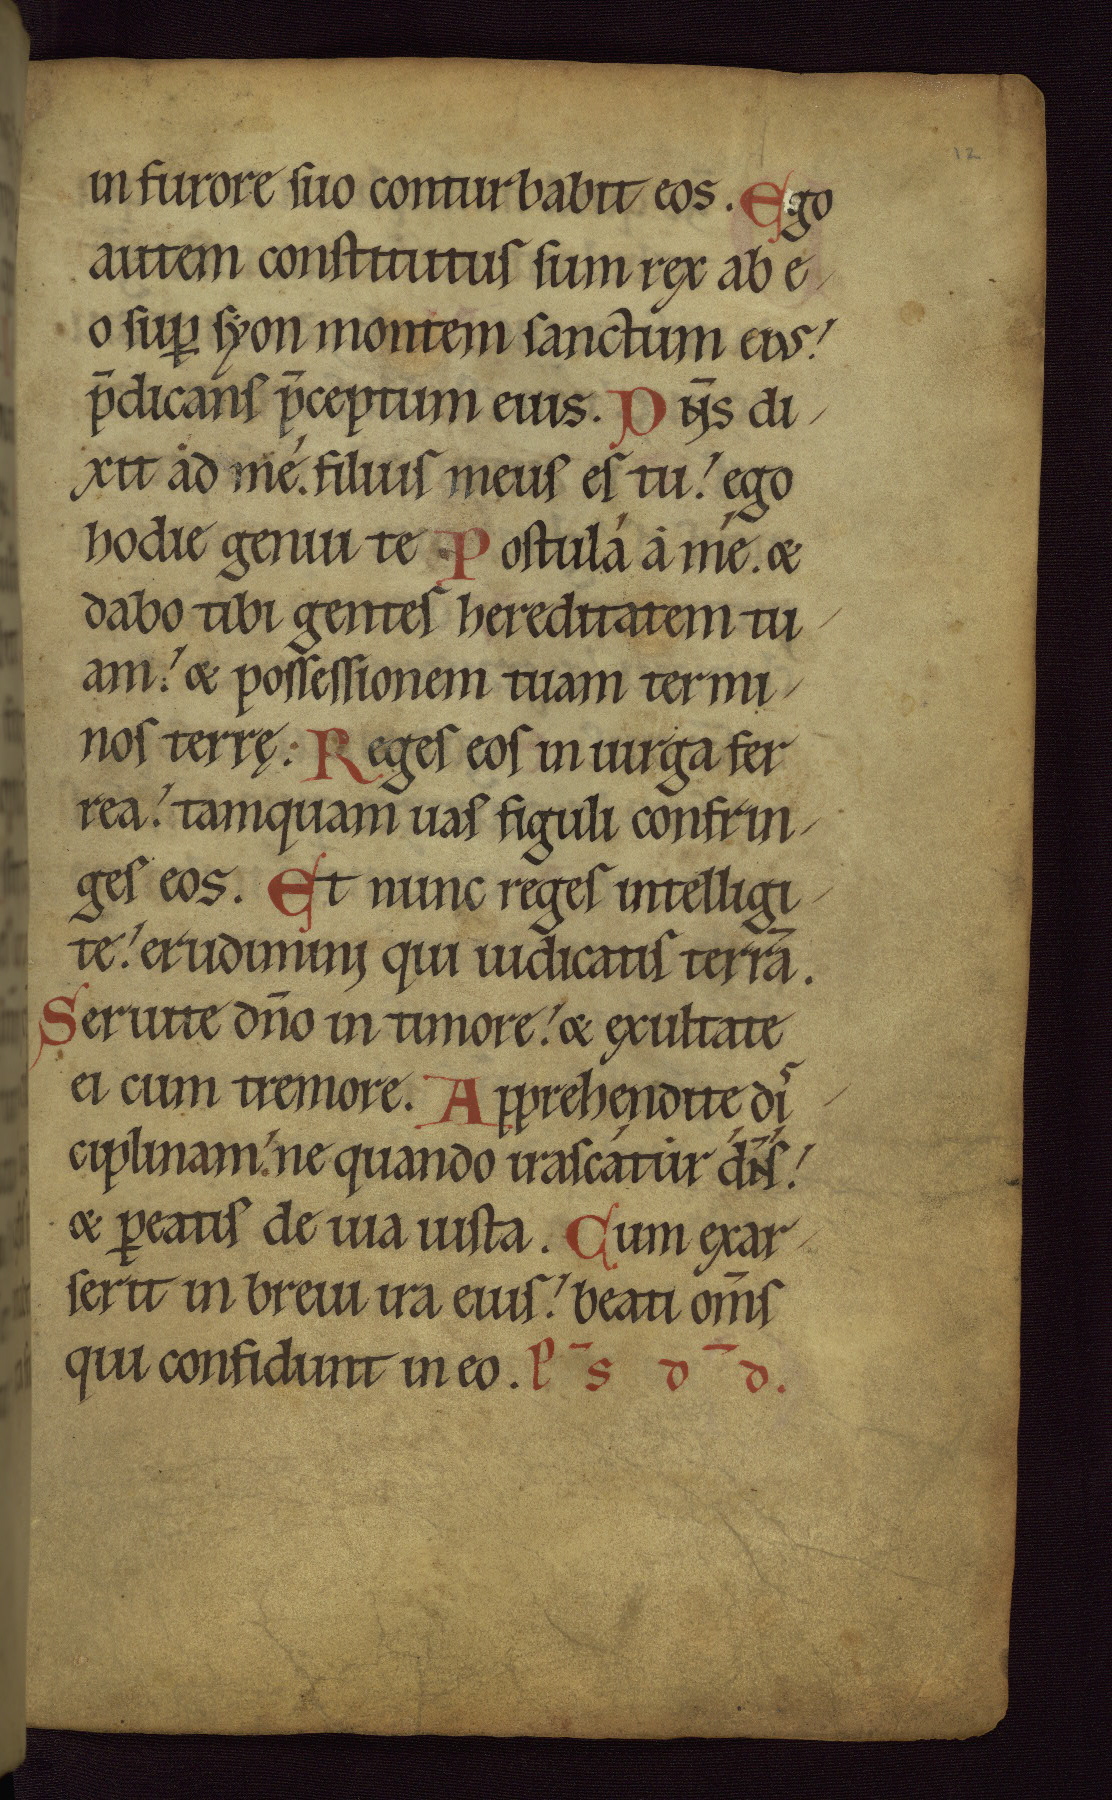 12
in furore suo conturbabit eos. Ego
autem constitutus sum rex ab e
o sup̱ syon montem sanctum eius!
p̄dicans p̄ceptum eius. Dn̄s di
xit ad me. filius meus es tu! ego
hodie genui te Postula a me. &
dabo tibi gentes hereditatem tu
am! & possessionem tuam termi
nos terrę. Reges eos in uirga fer
rea! tamquam uas figuli confrin
ges eos. Et nunc reges intelligi
te! erudimini qui iudicatis terrā.
Seruite dn̄o in timore! & exultate
ei cum tremore. Apprehendite dis
ciplinam. ne quando irascatur dn̄s!
& p̱eatis de uia iusta. Cum exar
serit in breui ira eius! beati om̄s
qui confidunt in eo. P̄s d̄d.